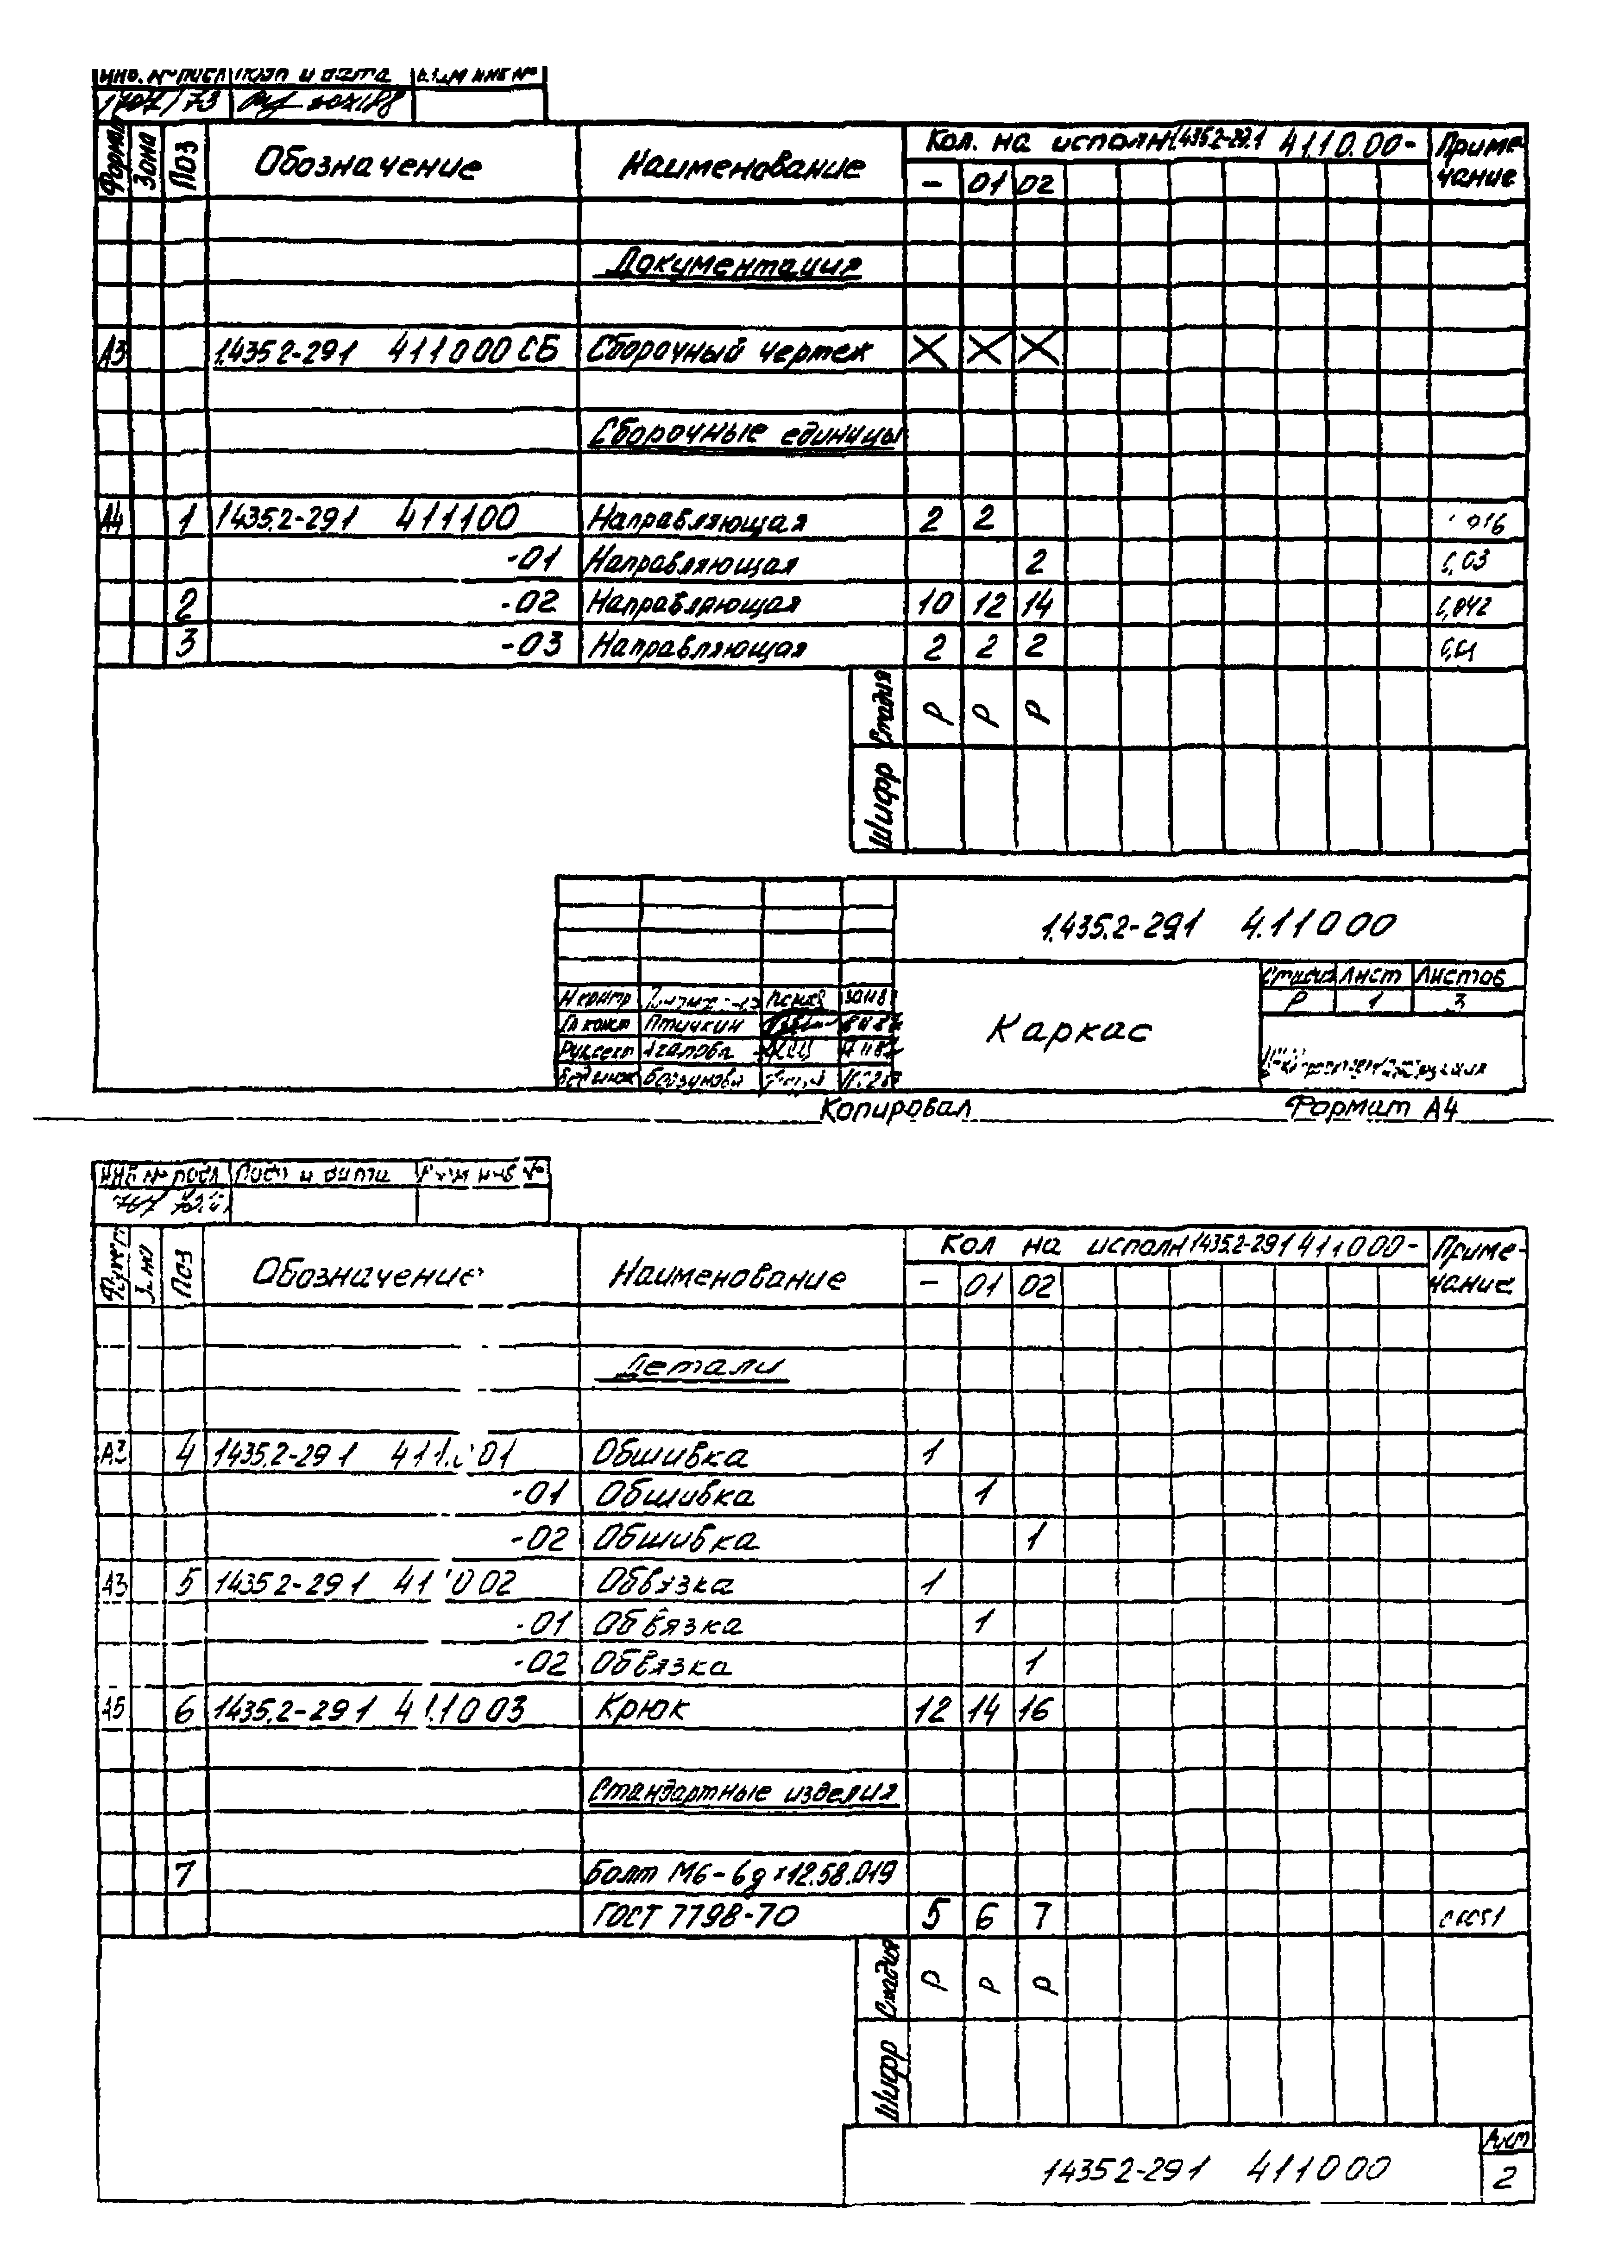 Инв. № подл Подп и дата Взам инв №
1707/73
Формат Зона Поз Обозначение Наименование Кол. на исполн 1.435.2-29.1 4.1.10.00- Приме-чание
- 01 02
Документация
А3 1.435.2-29.1 4.11.0.00 СБ Сборочный чертеж X X X
Сборочные единицы
А4 1 1.435.2-29.1 411100 Направляющая 2 2
-01 Направляющая 2 0,03
2 -02 Направляющая 10 12 14 0,042
3 -03 Направляющая 2 2 2
Стадия Р Р Р
Шифр
1.435.2-29.1 4.11000
Стадия Лист Листов
Р 1 3
Каркас
Н контр
Гл конст Птичкин
Рук сект
Вед инж
Копировал Формат А4
Инв № подл Подп и дата Взам инв №
Формат Зона Поз Обозначение Наименование Кол на исполн 1435.2-291 411000- Приме-чание
- 01 02
Детали
А3 4 1435.2-29 1 01 Обшивка 1
-01 Обшивка 1
-02 Обшивка 1
А3 5 14352-29 1 002 Обвязка 1
-01 Обвязка 1
-02 Обвязка 1
6 1435.2-29 1 411003 Крюк 12 14 16
Стандартные изделия
7 Болт М6-6g×12.58.019
ГОСТ 7798-70 5 6 7
Стадия Р Р Р
Шифр
14352-291 411000 Лист
2